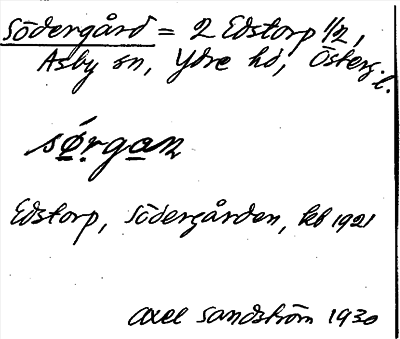 Södergård = 2 Edstorp 1/2,
Asby sn, Ydre hd, Österg.l.
sǿ̱ṛga̱n
Edstorp, Södergården, kb 1921
Axel Sandström 1930